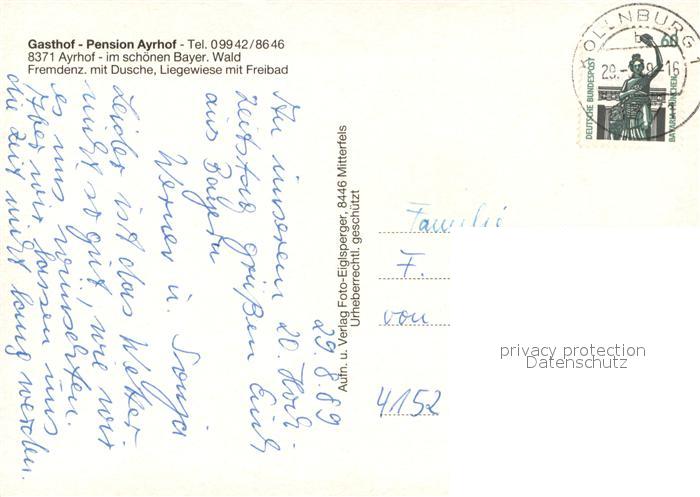 Gasthof - Pension Ayrhof - Tel. 09942/8646
8371 Ayrhof - im schönen Bayer. Wald
Fremdenz. mit Dusche, Liegewiese mit Freibad
29.8.89
An unserem 20. Hoch
zeitstag grüßen Euch
aus Bayern
Werner u. Sonja
Leider ist das Wetter
nicht so gut, wie wir
es uns wünschten.
Aber wir lassen uns
die Zeit nicht lang werden.
Aufn. u. Verlag Foto-Eiglsperger, 8446 Mitterfels
Urheberrechtl. geschützt
KOLLNBURG 1
b
29.-8.89-16
60
DEUTSCHE BUNDESPOST
BAVARIA MÜNCHEN
Familie
F.
von
4152
privacy protection
Datenschutz